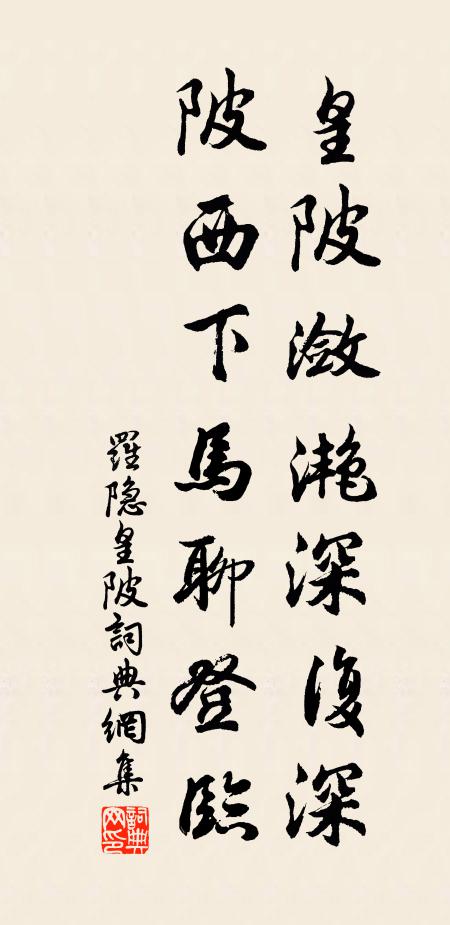 皇陂潋滟深復深
陂西下馬聊登臨
羅隐皇陂詞典網集
詞典
网印